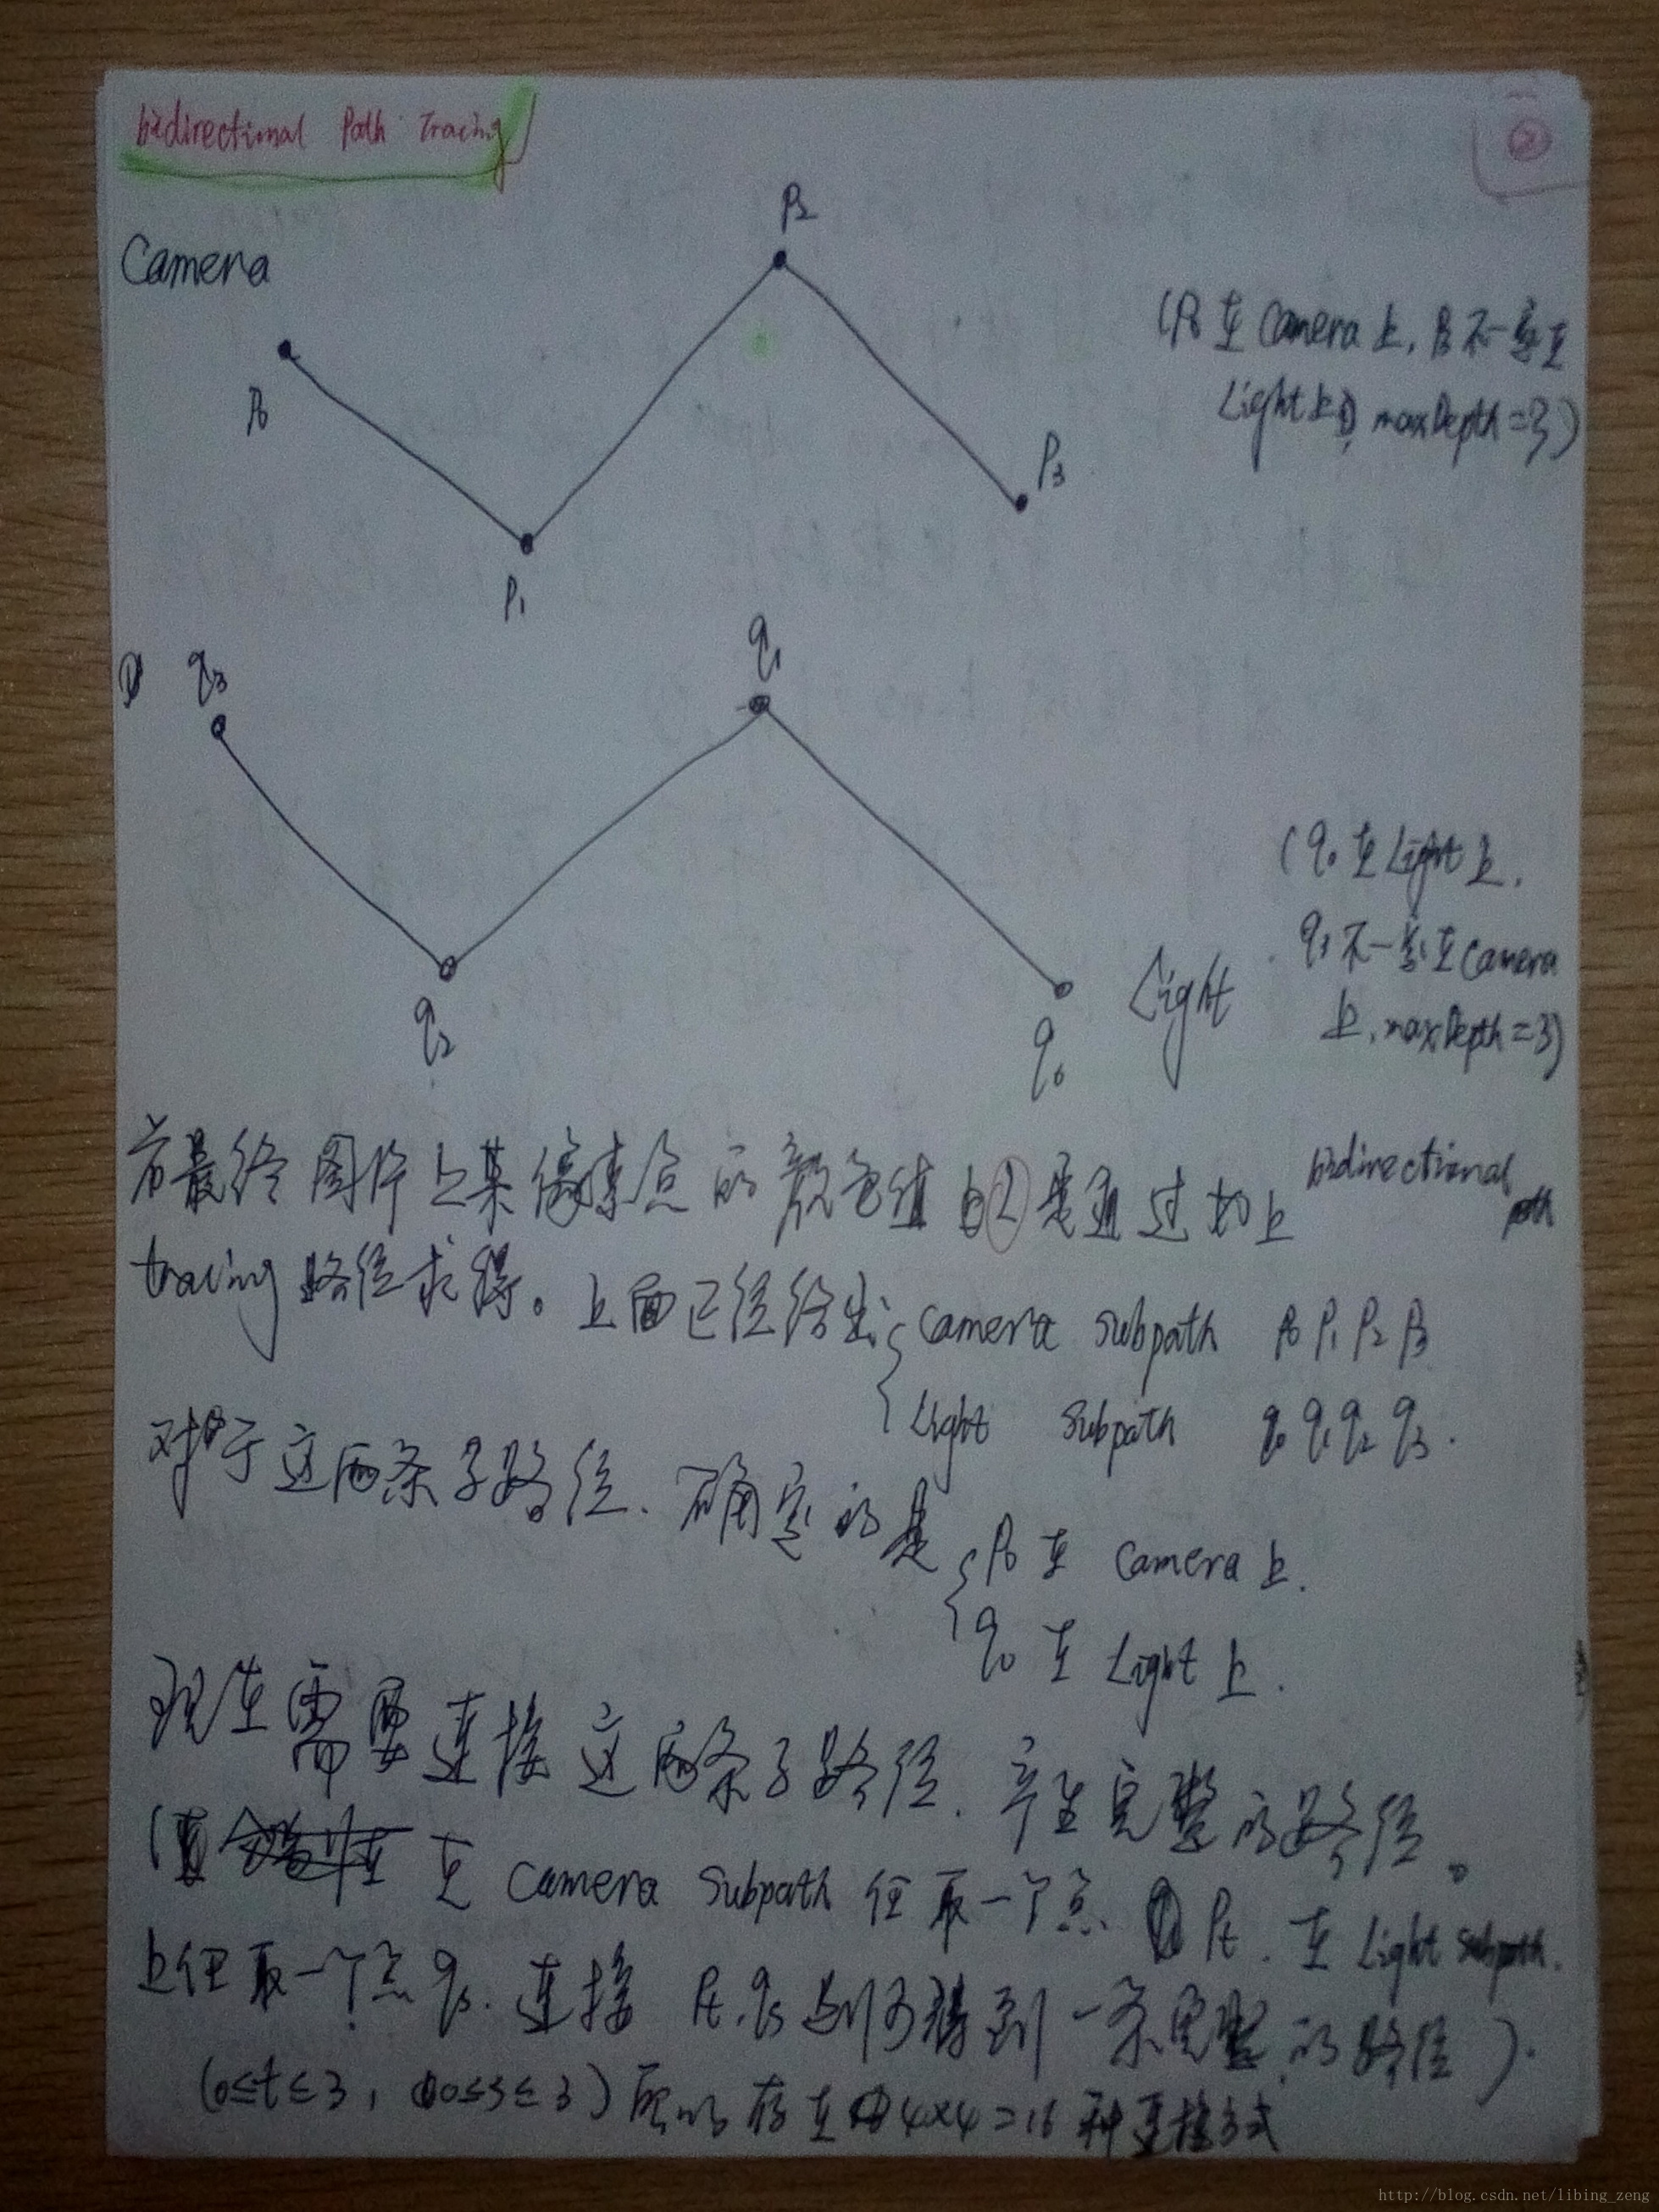 bidirectional Path Tracing
②
P2
Camera
(P0在Camera上,P3不一定在
Light上,maxDepth=3)
P0
P3
P1
q1
q3
(q0在Light上,
q3不一定在Camera
上,maxDepth=3)
Light
q2
q0
若最终图片上某像素点的颜色值L是通过如上bidirectional path
tracing路径求得。上面已经给出{Camera Subpath P0 P1 P2 P3
Light Subpath q0 q1 q2 q3.
对于这两条子路径,确定的是{P0在Camera上.
q0在Light上.
现在需要连接这两条子路径,产生完整的路径。
(在Camera Subpath任取一个点Pt,在Light subpath
上任取一个点qs,连接Pt,qs即可得到一条完整的路径).
(0≤t≤3, 0≤s≤3)所以存在4x4=16种连接方式
http://blog.csdn.net/libing_zeng